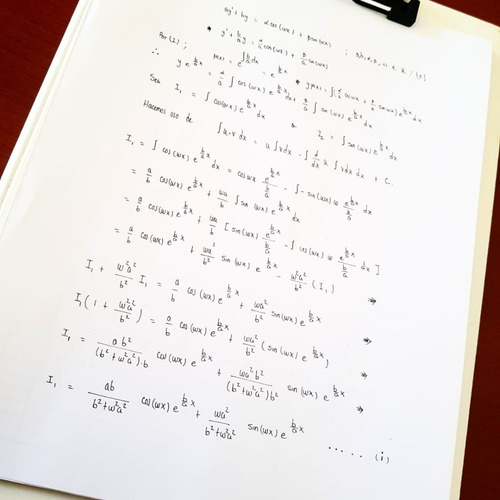 ay' + by = α cos(ωx) + β sin(ωx) ; a, b, α, β, ω ∈ ℝ / {0}
* y' + b/a y = α/a cos(ωx) + β/a sin(ωx)
Por (1) ; μ(x) = e^{∫ b/a dx} = e^{b/a x} * y μ(x) = ∫(α/a cos ωx + β/a sin ωx) e^{b/a x} dx
∴ y e^{b/a x} = α/a ∫ cos(ωx) e^{b/a x} dx + β/a ∫ sin(ωx) e^{b/a x} dx
Sea I₁ = ∫ cos(ωx) e^{b/a x} dx I₂ = ∫ sin(ωx) e^{b/a x} dx
Hacemos uso de ∫ u·v dx = u ∫ v dx - ∫ d/dx u ∫ v dx dx + C.
I₁ = ∫ cos(ωx) e^{b/a x} dx = cos ωx e^{b/a x}/(b/a) - ∫ - sin(ωx) ω e^{b/a x}/(b/a) dx
= a/b cos(ωx) e^{b/a x} + ωa/b ∫ sin(ωx) e^{b/a x} dx
= a/b cos(ωx) e^{b/a x} + ωa/b [ sin(ωx) e^{b/a x}/(b/a) - ∫ cos(ωx) ω e^{b/a x}/(b/a) dx ]
= a/b cos(ωx) e^{b/a x} + ωa²/b² sin(ωx) e^{b/a x} - ω²a²/b² (I₁)
I₁ + ω²a²/b² I₁ = a/b cos(ωx) e^{b/a x} + ωa²/b² sin(ωx) e^{b/a x}
I₁(1 + ω²a²/b²) = a/b cos(ωx) e^{b/a x} + ωa²/b² (sin(ωx) e^{b/a x})
I₁ = ab²/((b²+ω²a²)·b) cos(ωx) e^{b/a x} + ωa²b²/((b²+ω²a²)b²) sin(ωx) e^{b/a x}
I₁ = ab/(b²+ω²a²) cos(ωx) e^{b/a x} + ωa²/(b²+ω²a²) sin(ωx) e^{b/a x} ...... (i)